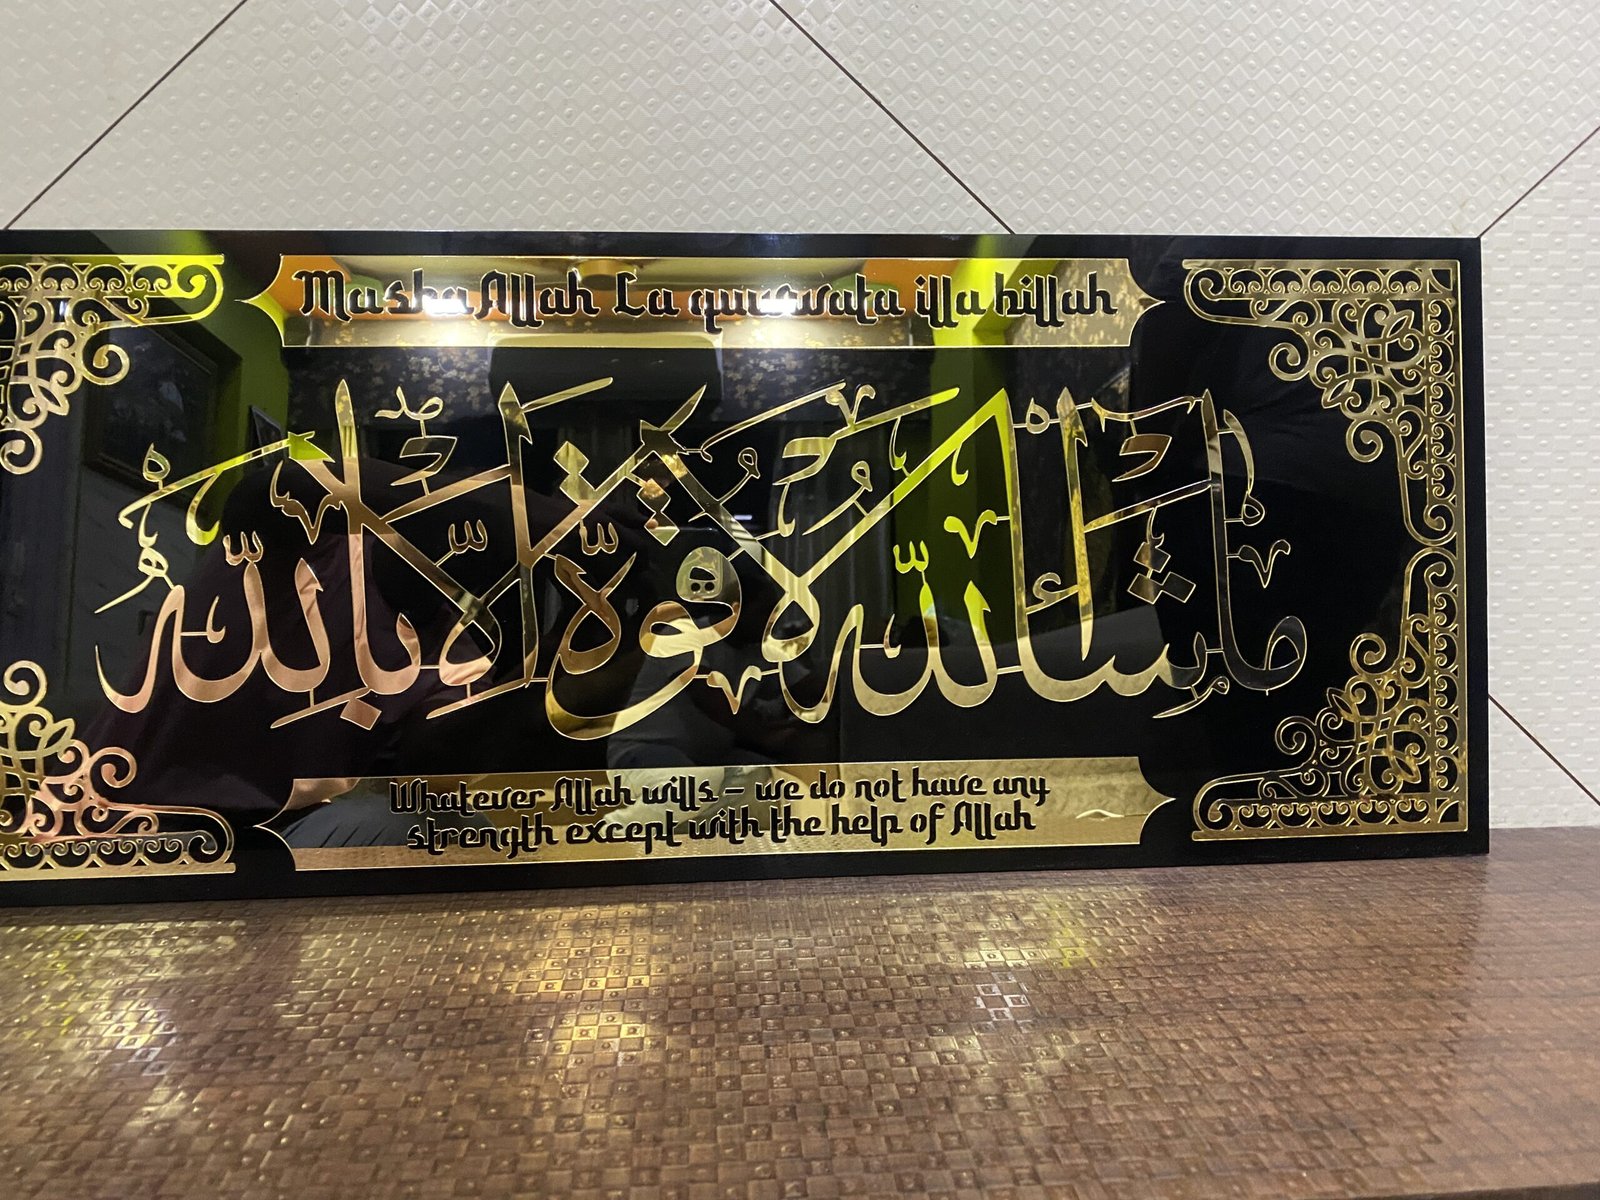 Masha Allah La quwwata illa billah
ما شاء الله لا قوة الا بالله
Whatever Allah wills – we do not have any
strength except with the help of Allah